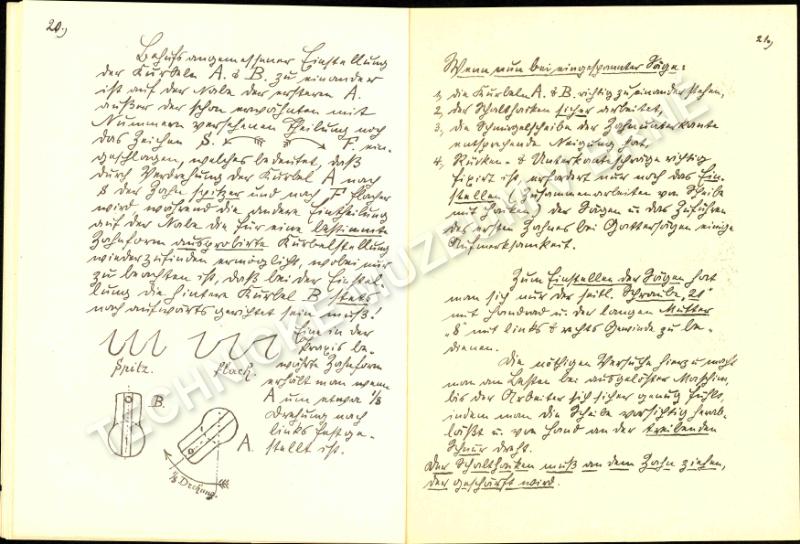 20.)
Behufs angemessener Einstellung
der Kurbeln A. & B. zu einander
ist auf der Nabe der ersteren A.
außer der schon erwähnten mit
Nummern versehenen Theilung noch
das Zeichen S. F. ein-
geschlagen, welches bedeutet, daß
durch Verdrehung der Kurbel A nach
S der Zahn spitzer und nach F flacher
wird während die andere Eintheilung
auf der Nabe die für eine bestimmte
Zahnform ausprobirte Kurbelstellung
wiederzufinden ermöglicht, wobei nur
zu beachten ist, daß bei der Einstel-
lung die hintere Kurbel B stets
nach aufwärts gerichtet sein muß!
Spitz. flach.
Eine in der
Praxis be-
währte Zahnform
erhält man wenn
A um etwa 1/8
Drehung nach
links festge-
stellt ist.
B.
A.
1/8 Drehung.
21.)
Wenn nun bei eingespannter Säge:
1, die Kurbeln A. & B. richtig zu einander stehen,
2, der Schalthaken sicher arbeitet,
3, die Schmirgelscheibe der Zahnunterkante
entsprechende Neigung hat
4, Rücken- & Unterkantschräge richtig
fixirt ist, erfordert nur noch das Ein-
stellen, Zusammenarbeiten von Scheibe
mit Haken, der Sägen u. das Zuführen
des ersten Zahnes bei Gattersägen einige
Aufmerksamkeit.
Zum Einstellen der Sägen hat
man sich nur der seitl. Schraube "21"
mit Handrad u. der langen Mutter
"8" mit links & rechts Gewinde zu be-
dienen.
Die nöthigen Versuche hierzu macht
man am Besten bei ausgelöster Maschine,
bis der Arbeiter sich sicher genug fühlt,
indem man die Scheibe vorsichtig herab-
läßt u. von Hand an der treibenden
Schnur dreht.
Der Schalthaken muß an dem Zahn ziehen,
der geschärft wird.
TECHNICKÉ MUZEUM V BRNĚ